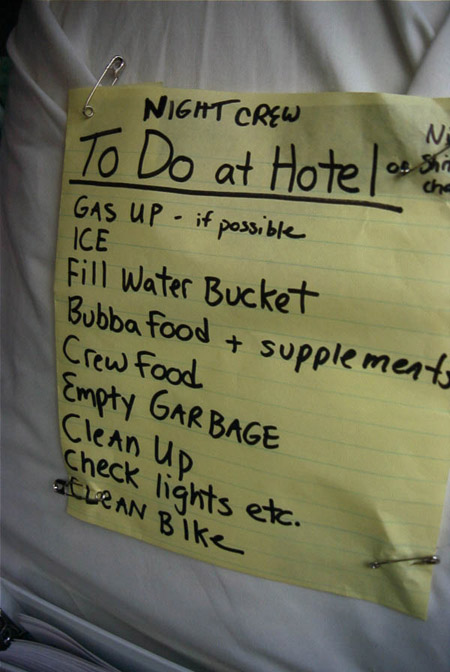 NIGHT CREW
To Do at Hotel or
GAS UP - if possible
ICE
Fill Water Bucket
Bubba Food + supplements
Crew Food
Empty GARBAGE
Clean Up
Check lights etc.
CLEAN BIKE